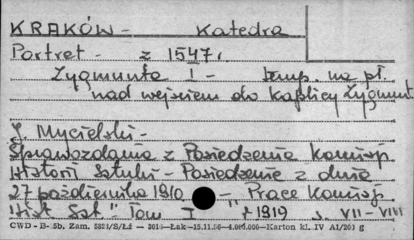 KRAKÓW - Katedra
Portret - z 1547 r.
Zygmunta I - temp. na pł.
nad wejściem do Kaplicy Zygmunt
J. Mycielski -
Sprawozdania z Posiedzenia Komisji
Historii Sztuki - Posiedzenie z dnia
27 października 1910 - "Prace Komisji
Hist. Szt." Tom I r 1919 s. VII - VIII
CWD - B- 5b, Zam. 5824/S/Łź — Łak — 15.11.56 — 4.000.000 — Karton kl. IV A1/200 g